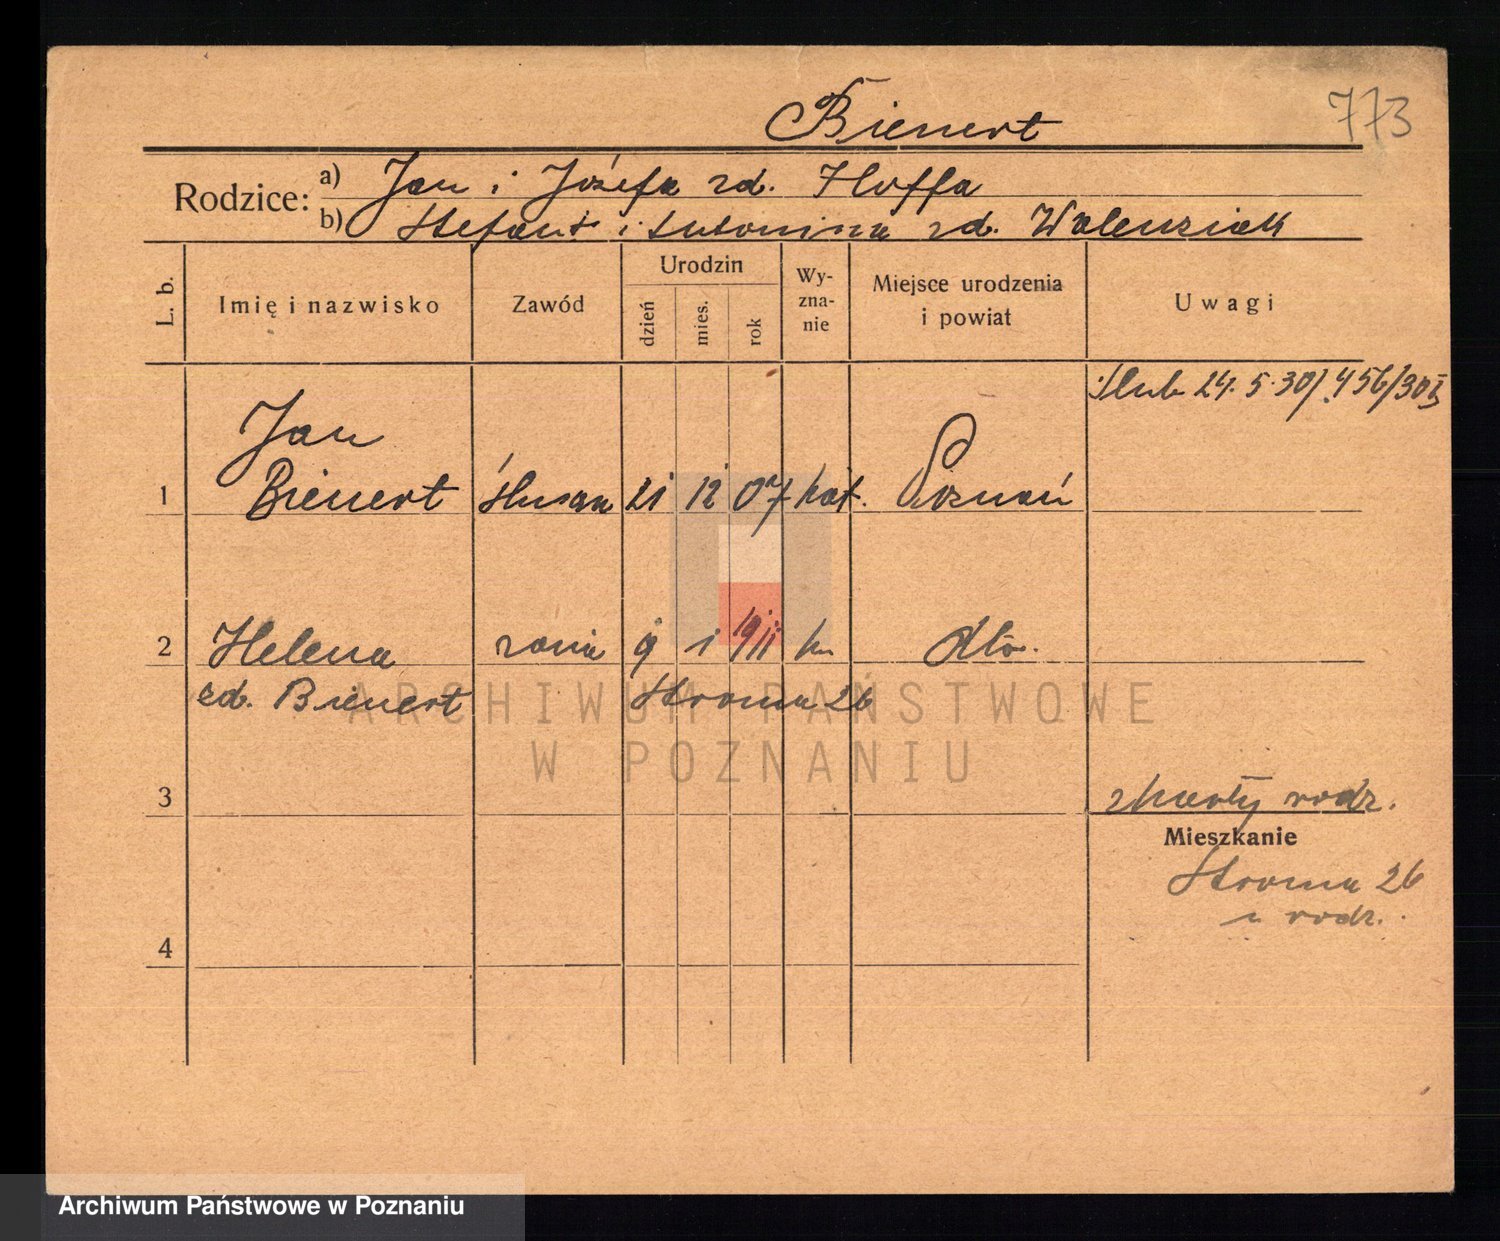 Bienert
773
Rodzice:
a) Jan i Józefa zd. Hoffa
b) Stefan i Antonina zd. Walensiak
L. b.
Imię i nazwisko
Zawód
Urodzin
dzień
mies.
rok
Wy-
zna-
nie
Miejsce urodzenia
i powiat
Uwagi
Ślub 24. 5. 30 456/30
Jan
1 Bienert
21 12 07 kat. Poznań
2 Helena żona 9 1 1911 k dto.
zd. Bienert Stroma 26
ARCHIWUM PAŃSTWOWE
W POZNANIU
3
rodz.
Mieszkanie
Stroma 26
u rodz.
4
Archiwum Państwowe w Poznaniu